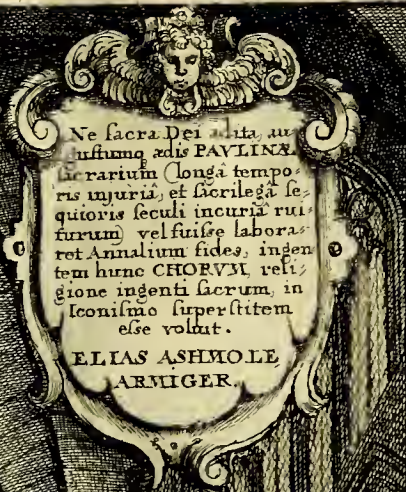 Ne sacra Dei adita, au-
gustumq ædis PAVLINÆ
sacrarium (longâ tempo-
ris injuriâ, et sacrilegâ se-
quioris seculi incuriâ rui-
turum) vel fuisse labora-
ret Annalium fides, ingen
tem hunc CHORVM, reli-
gione ingenti sacrum, in
Iconismo superstitem
esse voluit.
ELIAS ASHMOLE,
ARMIGER.